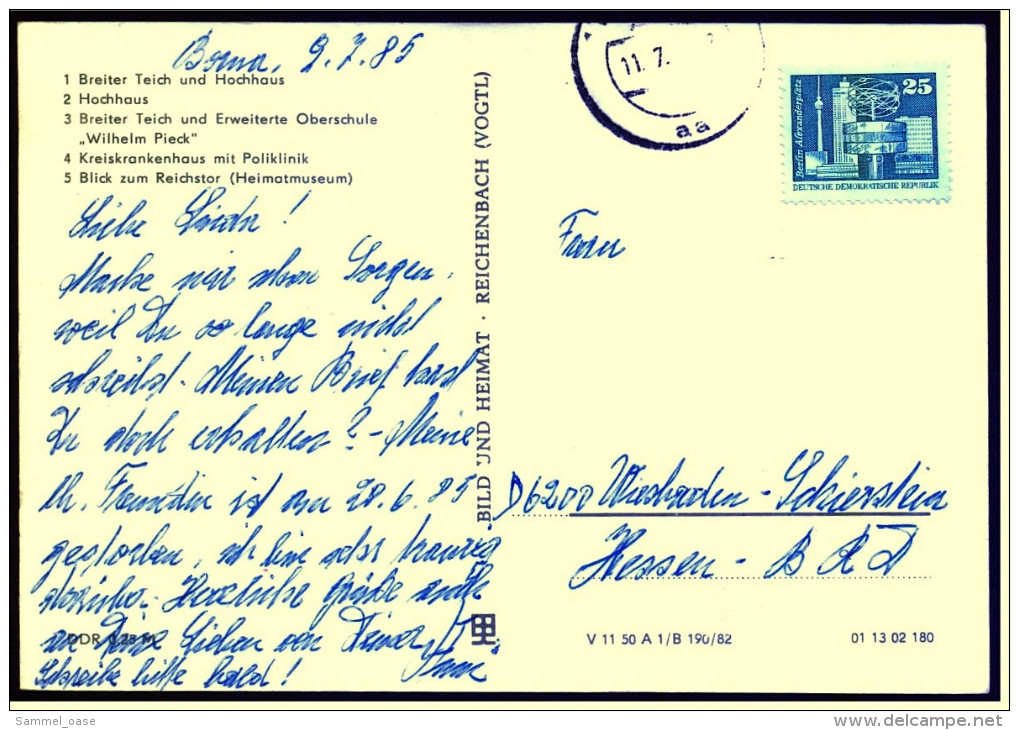 Borna, 9.7.85
1 Breiter Teich und Hochhaus
2 Hochhaus
3 Breiter Teich und Erweiterte Oberschule
„Wilhelm Pieck“
4 Kreiskrankenhaus mit Poliklinik
5 Blick zum Reichstor (Heimatmuseum)
Liebe Linda!
Mache mir schon Sorgen,
weil Du so lange nicht
schreibst. Meinen Brief hast
Du doch erhalten? - Meine
lb. Freundin ist am 28.6.85
gestorben, ich bin sehr traurig
darüber. Herzliche Grüße
Deine Lieben von Deiner
Schreibe bitte bald!
DDR
BILD UND HEIMAT · REICHENBACH (VOGTL)
11. 7.
aa
25
Berlin Alexanderplatz
DEUTSCHE DEMOKRATISCHE REPUBLIK
Frau
D6200 Wiesbaden - Schierstein
Hessen - BRD
V 11 50 A 1/B 190/82
01 13 02 180
Sammel_oase
delcampe.net